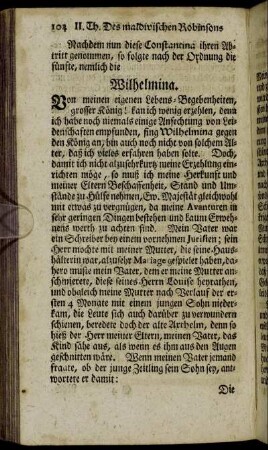 104 II. Th. Des maldivischen Robinsons
Nachdem nun diese Constantina ihren Ab-
tritt genommen, so folgte nach der Ordnung die
fünfte, nemlich die
Wilhelmina.
Von meinen eigenen Lebens-Begebenheiten,
grosser König! kan ich wenig erzehlen, denn
ich habe noch niemals einige Anfechtung von Lei-
denschaften empfunden, fing Wilhelmina gegen
den König an, bin auch noch nicht von solchem Al-
ter, daß ich vieles erfahren haben solte. Doch,
damit ich nicht allzusehr kurtz meine Erzehlung ein-
richten möge, so muß ich meine Herkunft und
meiner Eltern Beschaffenheit, Stand und Um-
stände zu Hülfe nehmen, Ew. Majestät gleichwohl
mit etwas zu vergnügen, da meine Avanturen in
sehr geringen Dingen bestehen und kaum Erweh-
nens werth zu achten sind. Mein Vater war
ein Schreiber bey einem vornehmen Juristen; sein
Herr mochte mit meiner Mutter, die seine Haus-
hälterin war, allzusehr Mariage gespielet haben, da-
hero muste mein Vater, dem er meine Mutter an-
schmierete, diese seines Herrn Louise heyrathen,
und obgleich meine Mutter nach Verlauf der er-
sten 4 Monate mit einem jungen Sohn nieder-
kam, die Leute sich auch darüber zu verwundern
schienen, beredete doch der alte Arxhelm, denn so
hieß der Herr meiner Eltern, meinen Vater, das
Kind sähe aus, als wenn es ihm aus den Augen
geschnitten wäre. Wenn meinen Vater jemand
fragte, ob der junge Zeitling sein Sohn sey, ant-
wortete er damit:
Die